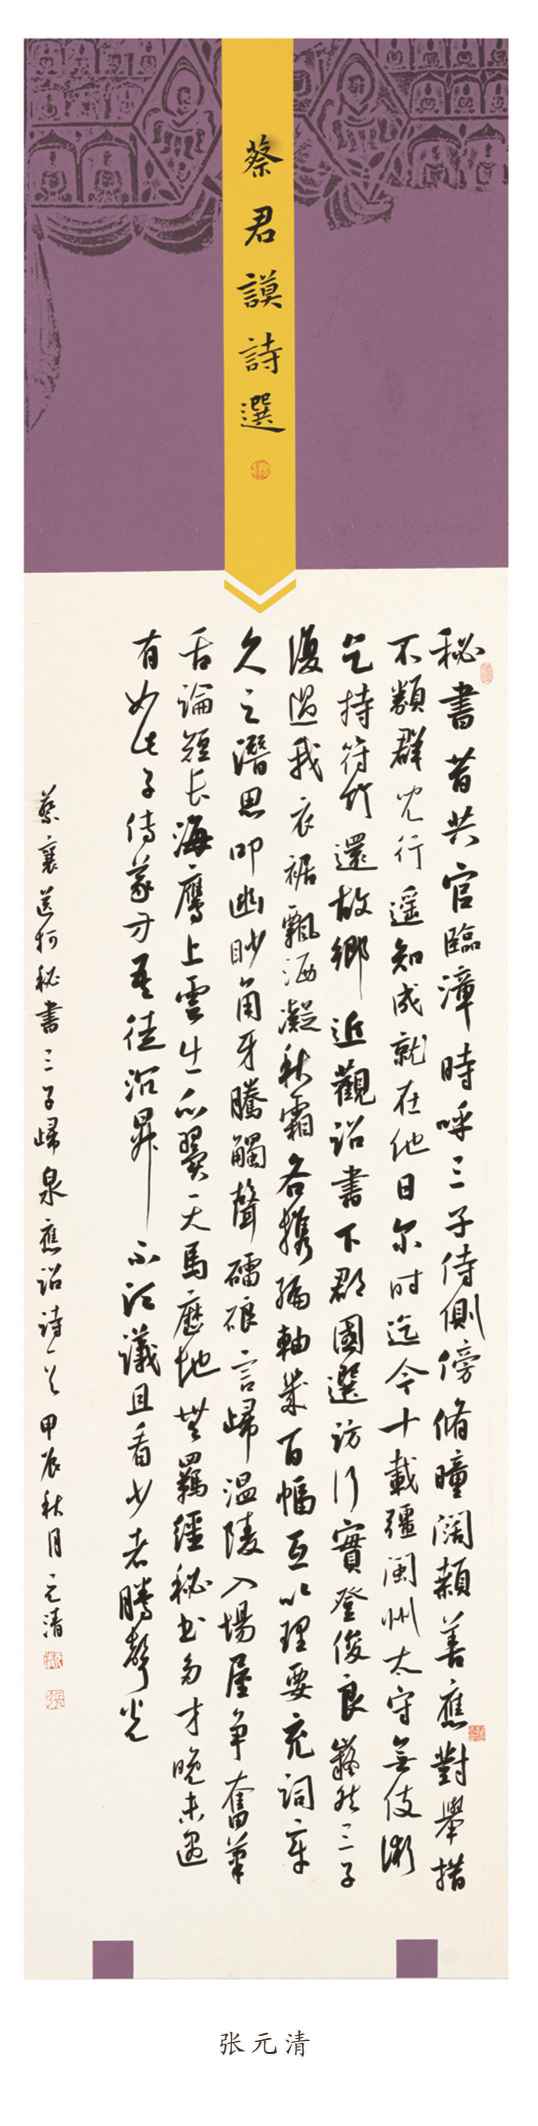 蔡君謨詩選
秘書昔共官臨漳時呼三子侍側傍脩瞳闊顙善應對舉措
不類群兒行遥知成就在他日尔时迄今十載彊閩州太守無伎術
乞持符竹還故鄉近觀詔書下郡國選訪行實登俊良巍然三子
復過我衣裾飄洒凝秋霜各携編軸業百幅互以理要充詞章
久之潛思叩幽眇角牙騰觸聲礌硠言歸温陵入場屋争奮筆
舌論短长海鷹上雲生爪翼天馬歷地無羈繮秘书多才晚未遇
有如此子傳義方吾徒沉昇不須議且看少者騰聲光
蔡襄送柯秘書三子歸泉應詔詩一首甲辰秋月元清
张元清